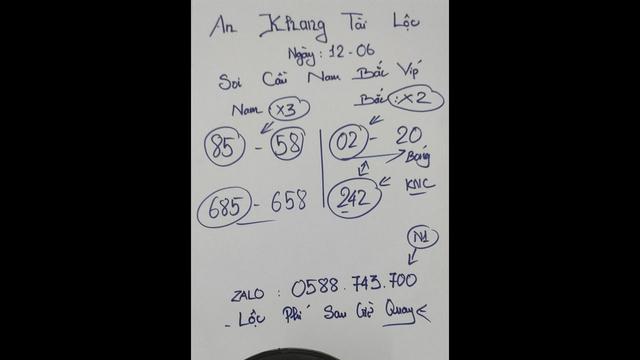 An Khang Tài Lộc
Ngày: 12-06
Soi Cầu Nam Bắc Víp
Nam: x3
Bắc: x2
85 - 58
02 - 20
Bóng
685 - 658
242
KNC
N1
ZALO : 0588.743.700
- Lộc Phí Sau Giờ Quay